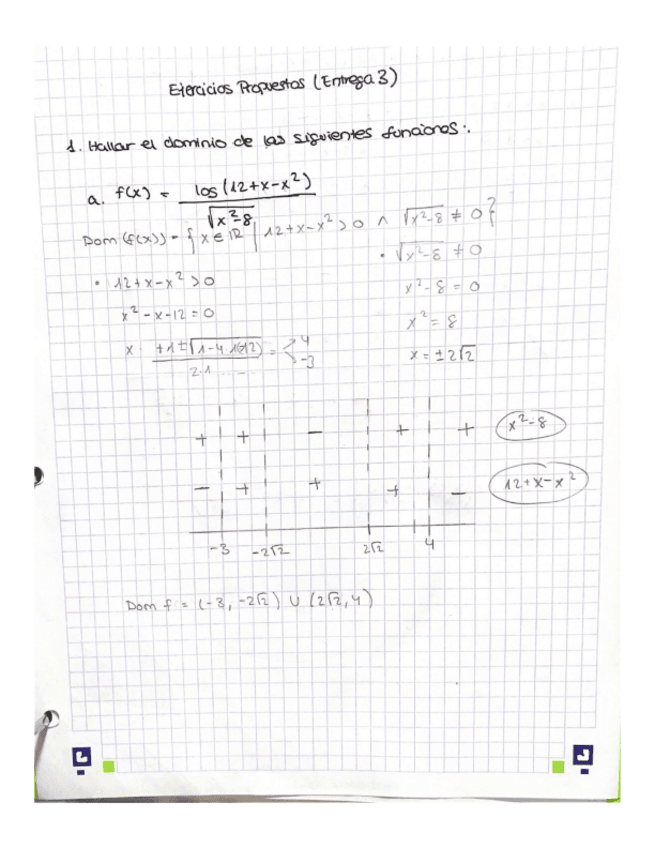 Ejercicios Propuestos (Entrega 3)
1. Hallar el dominio de las siguientes funciones:.
a. f(x) = log(12+x-x²) / √x²-8
Dom (f(x)) = { x ∈ IR | 12+x-x² > 0 ∧ √x²-8 ≠ 0 }
• 12+x-x² > 0
• √x²-8 ≠ 0
x²-x-12 = 0
x²-8 = 0
x² = 8
x = +1±√1-4·1(-12) / 2·1 = < 4 -3
x = ±2√2
+ + - + + x²-8
- + + + - 12+x-x²
-3 -2√2 2√2 4
Dom f = (-3, -2√2) ∪ (2√2, 4)